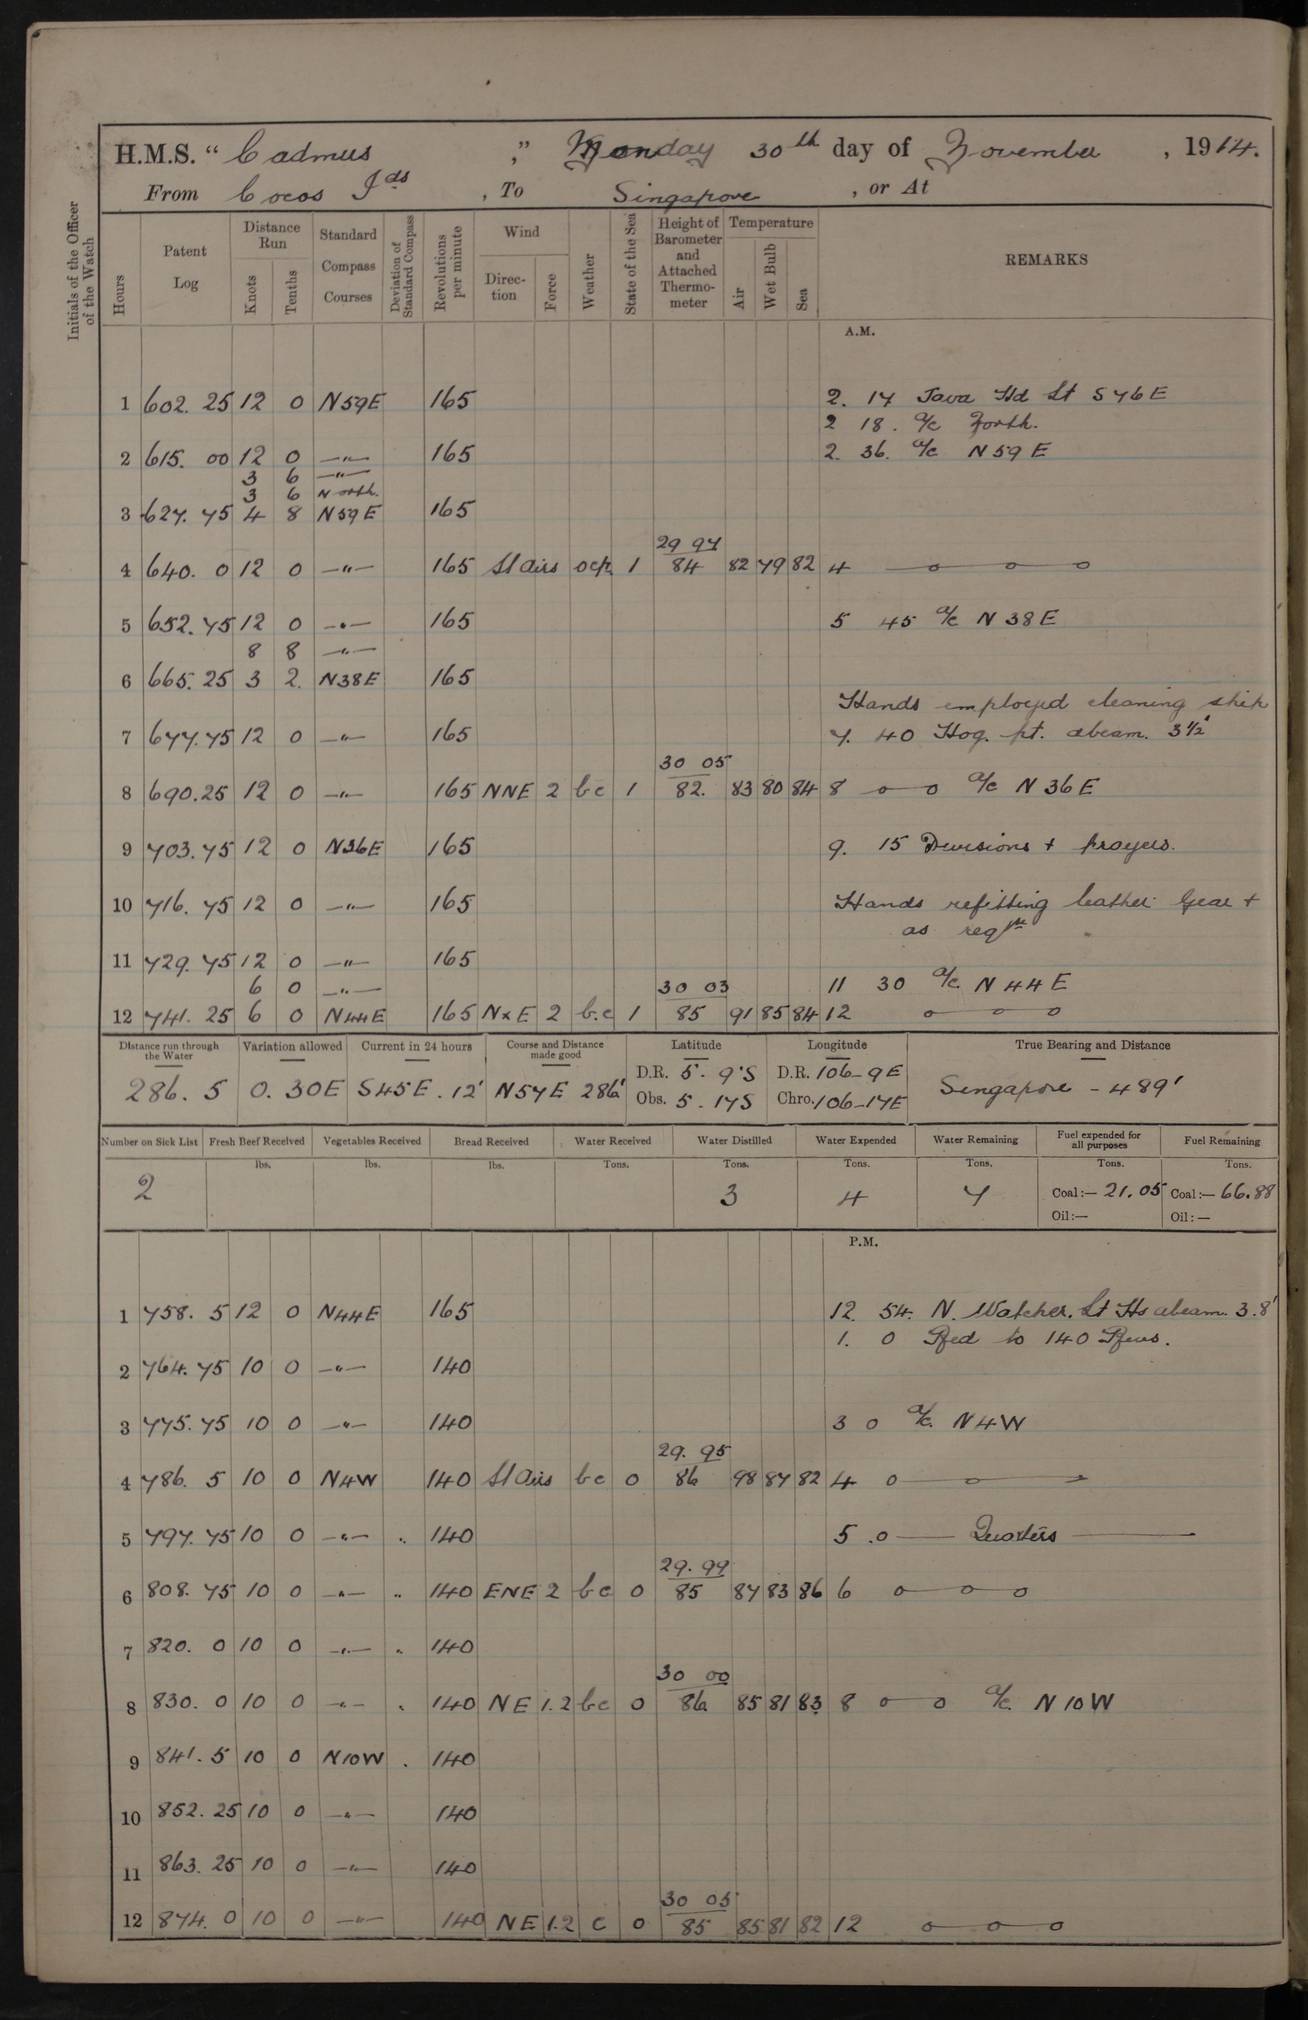 H.M.S. “Cadmus ,” Monday 30th day of November , 1914.
From Cocos Ids , To Singapore , or At
Initials of the Officer of the Watch
Hours Patent Log Distance Run Knots Tenths Standard Compass Courses Deviation of Standard Compass Revolutions per minute Wind Direction Force Weather State of the Sea Height of Barometer and Attached Thermometer Temperature Air Wet Bulb Sea REMARKS
A.M.
1 602. 25 12 0 N59E 165 2. 14 Java Hd Lt S 76 E
2 18. a/c North.
2 615. 00 12 0 —"— 165 2. 36. a/c N 59 E
3 6 —"—
3 6 North.
3 627. 75 4 8 N59E 165
29 97
4 640. 0 12 0 —"— 165 Lt airs ocp 1 84 82 79 82 4 —o—o—o
5 652. 75 12 0 —"— 165 5 45 a/c N 38 E
8 8 —"—
6 665. 25 3 2. N38E 165
Hands employed cleaning ship
7 677. 75 12 0 —"— 165 7. 40 Hog. pt. abeam. 3½'
30 05
8 690. 25 12 0 —"— 165 NNE 2 bc 1 82. 83 80 84 8 —o—o a/c N 36 E
9 703. 75 12 0 N36E 165 9. 15 Divisions + prayers.
10 716. 75 12 0 —"— 165 Hands refitting leather gear +
as reqd
11 729. 75 12 0 —"— 165
6 0 —"— 30 03 11 30 a/c N 44 E
12 741. 25 6 0 N44E 165 NxE 2 b.c 1 85 91 85 84 12 o—o—o
Distance run through the Water Variation allowed Current in 24 hours Course and Distance made good Latitude Longitude True Bearing and Distance
286. 5 0. 30E S45E. 12' N57E 286' D.R. 5. 9'S D.R. 106-9E Singapore - 489'
Obs. 5. 17S Chro. 106-17E
Number on Sick List Fresh Beef Received Vegetables Received Bread Received Water Received Water Distilled Water Expended Water Remaining Fuel expended for all purposes Fuel Remaining
lbs. lbs. lbs. Tons. Tons. Tons. Tons. Tons. Tons.
2 3 4 7 Coal:— 21.05 Coal:— 66.88
Oil:— Oil:—
P.M.
1 758. 5 12 0 N44E 165 12. 54. N. Watcher. Lt Hs abeam. 3.8'
1. 0 Red to 140 Revs.
2 764. 75 10 0 —"— 140
3 775. 75 10 0 —"— 140 3 0 a/c. N 4 W
29. 95
4 786. 5 10 0 N4W 140 Lt airs bc 0 86 98 87 82 4 o—o—
5 797. 75 10 0 —"— " 140 5 .0 — Quarters —
29. 99
6 808. 75 10 0 —"— " 140 ENE 2 bc 0 85 87 83 86 6 o—o—o
7 820. 0 10 0 —"— " 140
30 00
8 830. 0 10 0 —"— " 140 NE 1.2 bc 0 86 85 81 83 8 o—o a/c. N 10 W
9 841. 5 10 0 N10W . 140
10 852. 25 10 0 —"— 140
11 863. 25 10 0 —"— 140
30 05
12 874. 0 10 0 —"— 140 NE 1.2 c 0 85 85 81 82 12 o—o—o